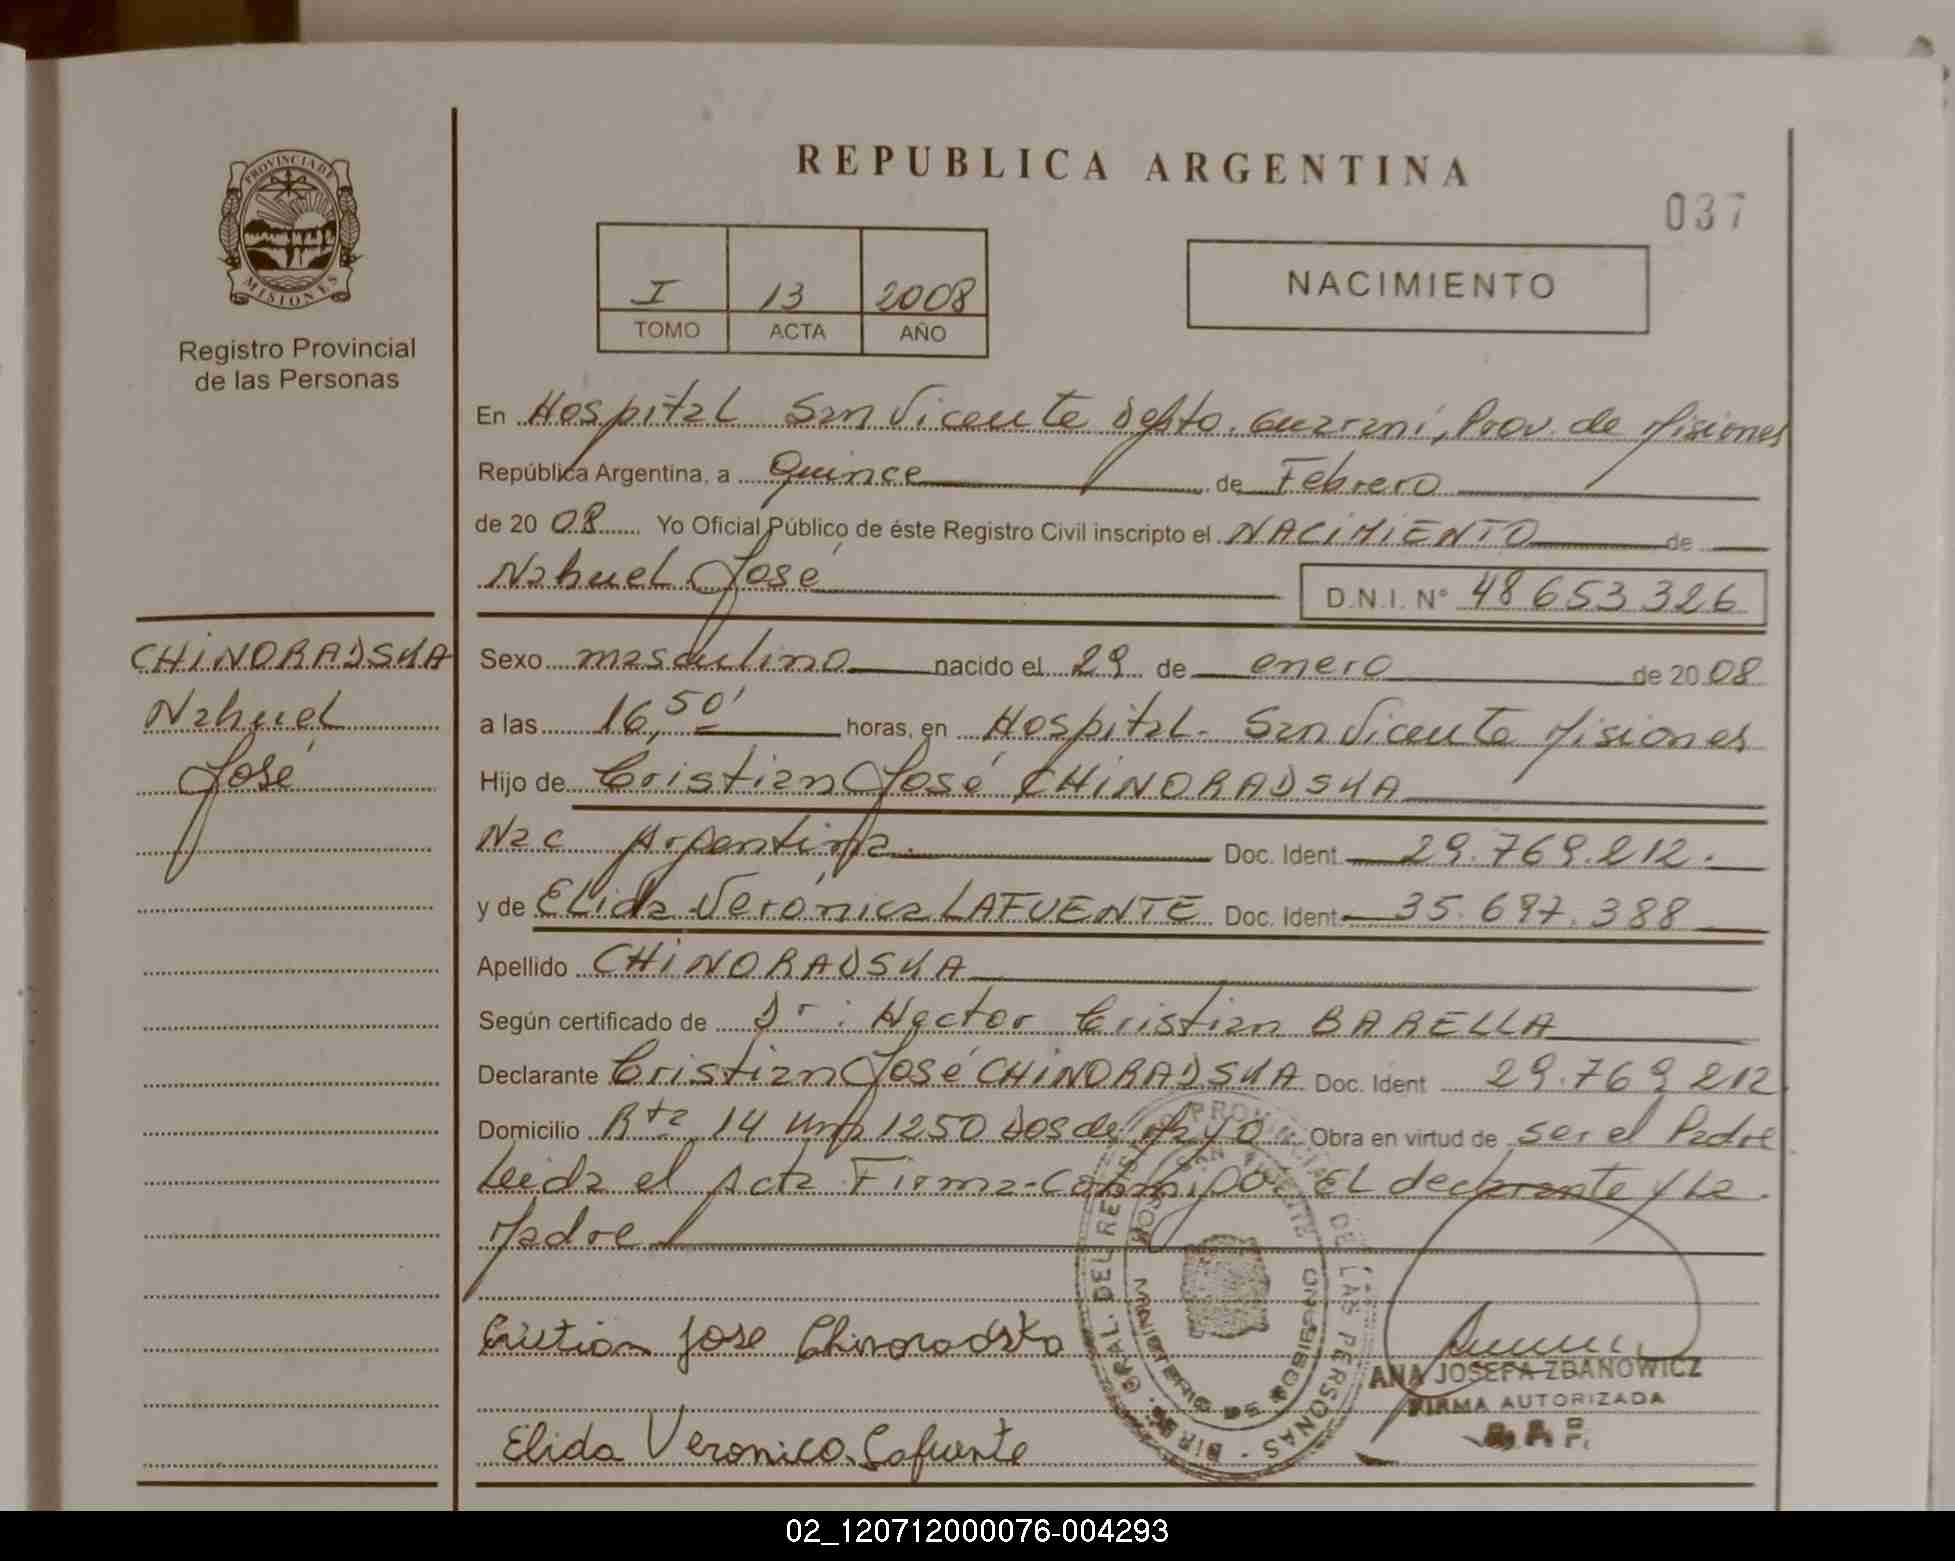 REPUBLICA ARGENTINA
037
PROVINCIA DE
MISIONES
Registro Provincial
de las Personas
I 13 2008
TOMO ACTA AÑO
NACIMIENTO
En Hospital San Vicente Depto. Guarani, Prov. de Misiones
República Argentina, a Quince de Febrero
de 20 08 Yo Oficial Público de éste Registro Civil inscripto el NACIMIENTO de
Nahuel José D.N.I. Nº 48653326
CHINORADSKA
Nahuel
José
Sexo masculino nacido el 29 de enero de 20 08
a las 16,50' horas, en Hospital San Vicente Misiones
Hijo de Cristian José CHINORADSKA
Nac Argentina. Doc. Ident. 29.769.212.
y de Elida Verónica LAFUENTE Doc. Ident. 35.697.388
Apellido CHINORADSKA
Según certificado de Dr: Hector Cristian BARELLA
Declarante Cristian José CHINORADSKA Doc. Ident 29.769.212
Domicilio Rta 14 Km 1250 Dos de Mayo Obra en virtud de ser el Padre
Leida el Acta Firma conmigo El declarante y La
Madre
Cristian Jose Chinoradska
Elida Veronica Lafuente
DIR. GRAL. DEL REG. PROVINCIAL DE LAS PERSONAS
HOSP. SAN VICENTE
ANA JOSEFA ZBANOWICZ
FIRMA AUTORIZADA
R.P.P.
02_120712000076-004293